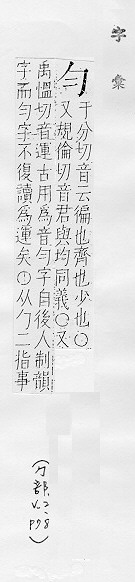 字彙
勻
于分切音云徧也齊也少也〇
又規倫切音君與均同義〇又
禹慍切音運古用爲音勻字自後人制韻
字而勻字不復讀爲運矣〇从勹二指事